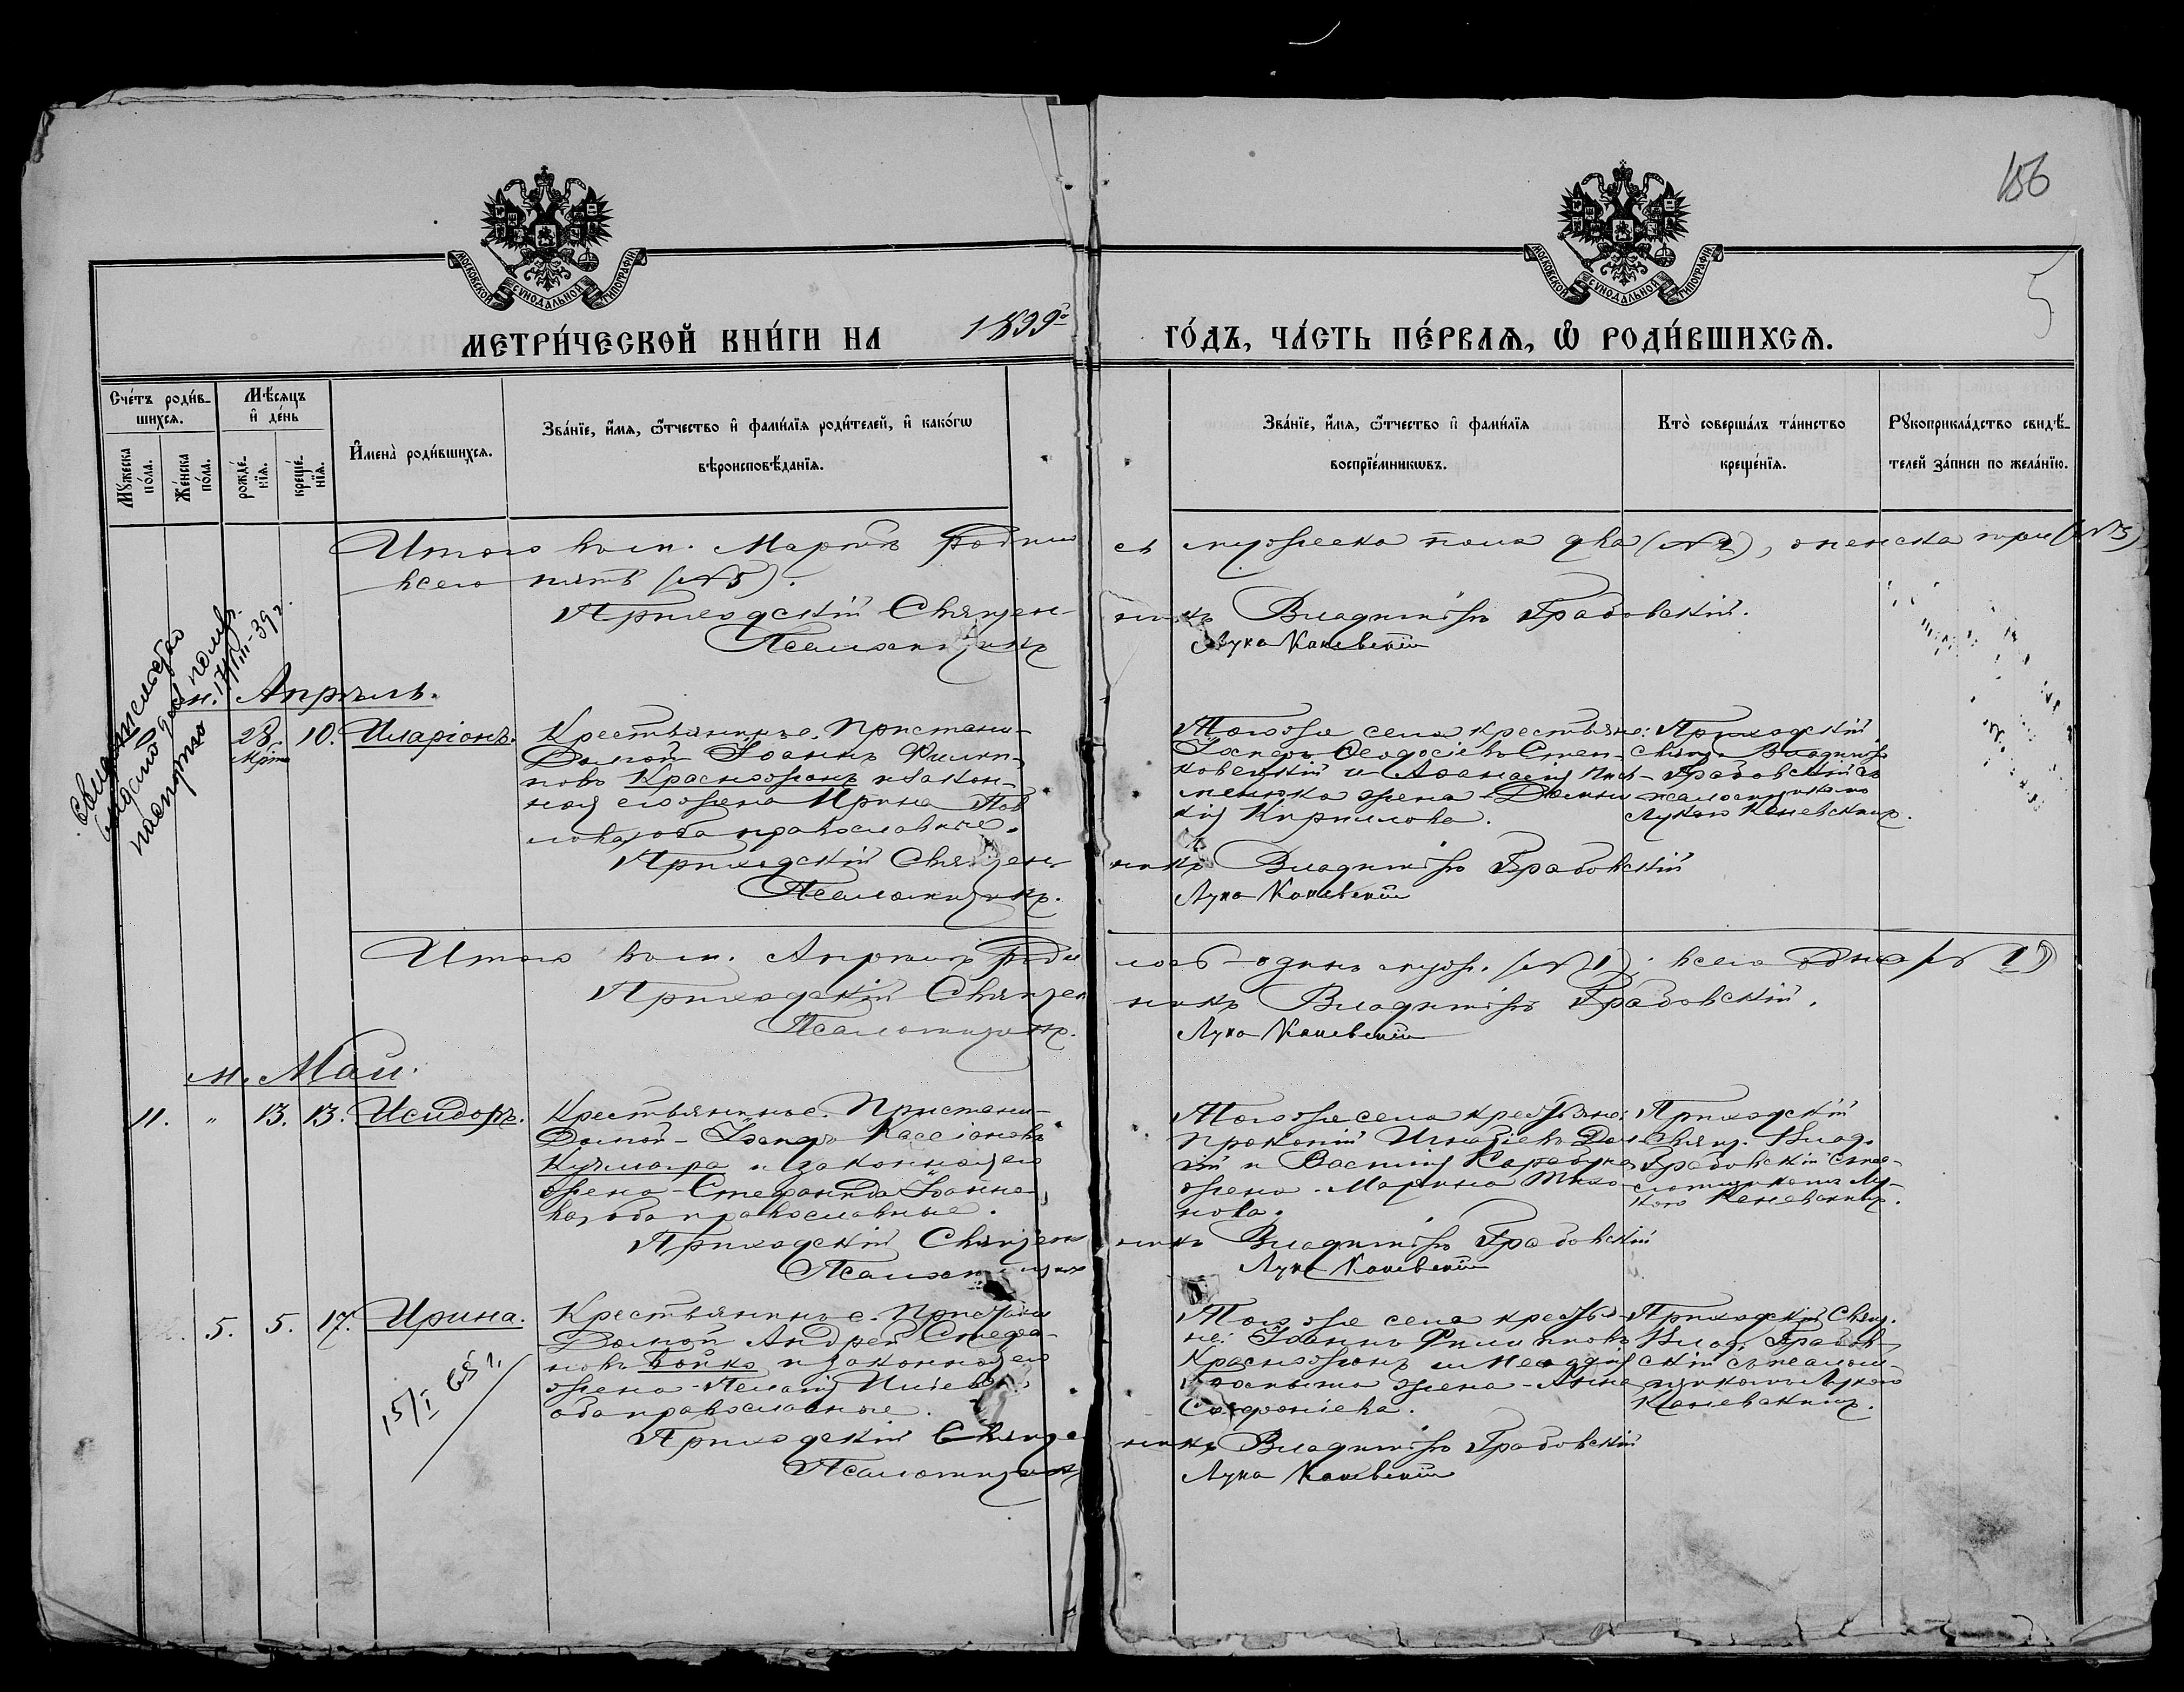 156
5
МОСКОВСКОЙ СУНОДАЛЬНОЙ ТИПОГРАФІИ
МОСКОВСКОЙ СУНОДАЛЬНОЙ ТИПОГРАФІИ
МЕТРИ́ЧЕСКОЙ КНИ́ГИ НА 1899 го ГО́ДЪ, ЧА́СТЬ ПЕ́РВАѦ, Ѡ РОДИ́ВШИХСѦ.
Сче́тъ роди́в-
шихсѧ.
Мꙋ́жеска по́ла.
Же́нска по́ла.
Мѣ́сѧцъ и де́нь
рожде́-нїѧ.
креще́-нїѧ.
И҆мена̀ роди́вшихсѧ.
Зва́нїе, и҆́мѧ, ѻ҆́тчество и҆ фами́лїѧ роди́телей, и҆ како́гѡ
вѣроисповѣ́данїѧ.
Зва́нїе, и҆́мѧ, ѻ҆́тчество и҆ фами́лїѧ
воспрїе́мникѡвъ.
Кто̀ соверша́лъ та́инство
креще́нїѧ.
Рꙋкоприкла́дство свидѣ́-
телей за́писи по жела́нїю.
Итого въ м. Мартѣ родилось мужеска пола два (№ 2), женска три (№ 3)
всего пять (№ 5).
Приходскій Священникъ Владиміръ Грабовскій.
Псаломщикъ Лука Каневскій
Свидетельство
выдано для получ.
паспорта 17/III-39 г.
м. Апрѣль.
28. Мрт. 10. Иларіонъ.
Крестьянинъ с. Пристани-
Долгой Іоаннъ Филип-
повъ Красножонъ и закон-
ная его жена Ирина Пав
лова, оба православные.
Тогоже села крестьяне:
Іосифъ Ѳеодосіевъ Степ-
ковецкій и Аѳанасія
жена-Домни
кія Кириллова.
Приходскій
свящ. Владиміръ
Грабовскій съ
псаломщикомъ
Лукою Каневскимъ.
Приходскій Священникъ Владиміръ Грабовскій
Псаломщикъ. Лука Каневскій
Итого въ м. Апрѣлѣ родилось одинъ муж. (№ 1); всего одна (№ 1)
Приходскій Священникъ Владиміръ Грабовскій.
Псаломщикъ. Лука Каневскій
м. Май.
11. " 13. 13. Исидоръ.
Крестьянинъ с. Пристани-
Долгой-Іосифъ Кассіановъ
Кучмагра и законная его
жена-Стефанида Іоанно-
ва, оба православные.
Тогоже села крестьяне:
Прокопій Игнатіевъ
и Василія Карабуна
жена-Марина Тихо-
нова.
Приходскій
Свящ. Влад.
Грабовскій съ пса-
ломщикомъ Лу-
кою Каневскимъ.
Приходскій Священникъ Владиміръ Грабовскій
Псаломщикъ Лука Каневскій
5. 5. 17. Ирина.
15/I 65 г.
Крестьянинъ с. Пристани
Долгой Андрей Стефа-
новъ Бойко и законная его
жена-Пелагія Иліева,
оба православные.
Тогоже села крестья-
не: Іоаннъ Филипповъ
Красножонъ и
жена-Анна
Софроніева.
Приходскій Свящ.
Влад. Грабов-
скій съ псалом-
щикомъ Лукою
Каневскимъ.
Приходскій Священникъ Владиміръ Грабовскій
Псаломщикъ Лука Каневскій